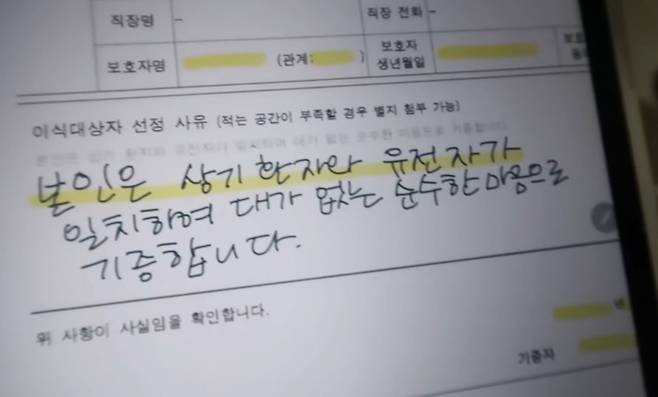 직장명 - 직장 전화 -
보호자명 (관계: ) 보호자 생년월일 보호
이식대상자 선정 사유 (적는 공간이 부족할 경우 별지 첨부 가능)
본인은 상기 환자와 유전자가
일치하여 대가 없는 순수한 마음으로
기증합니다.
위 사항이 사실임을 확인합니다.
년
기증자